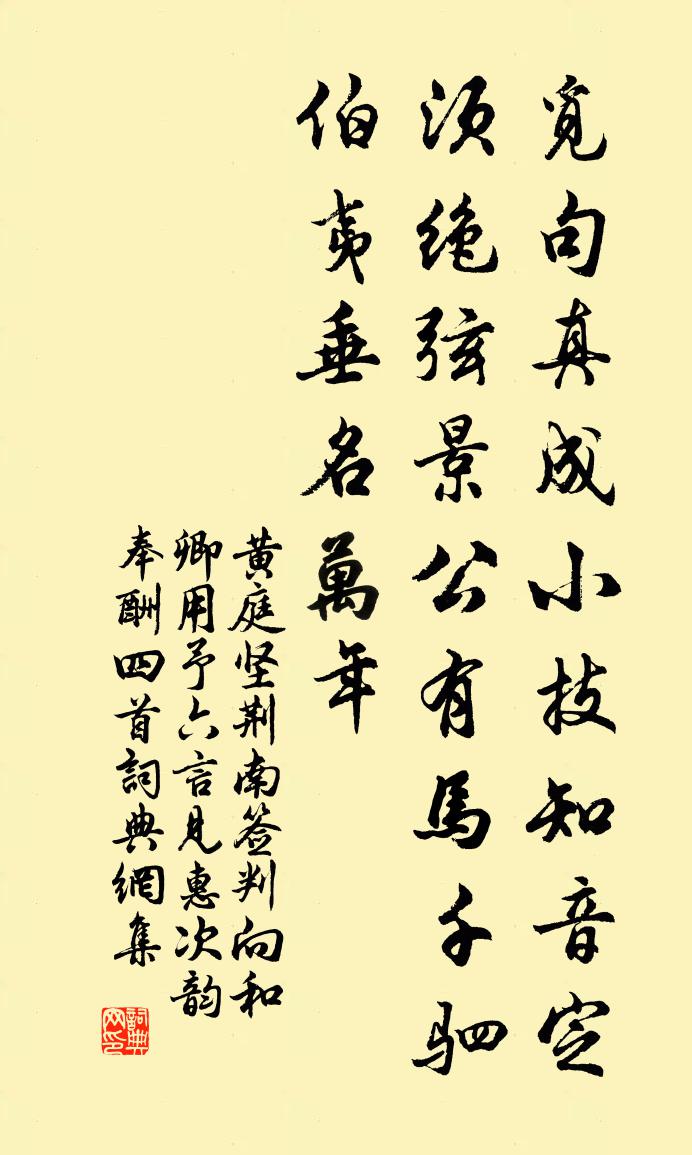 覓句真成小技知音定
須绝弦景公有馬千驷
伯夷垂名萬年
黄庭坚荆南签判向和
卿用予六言見惠次韵
奉酬四首詞典網集
詞典
网印